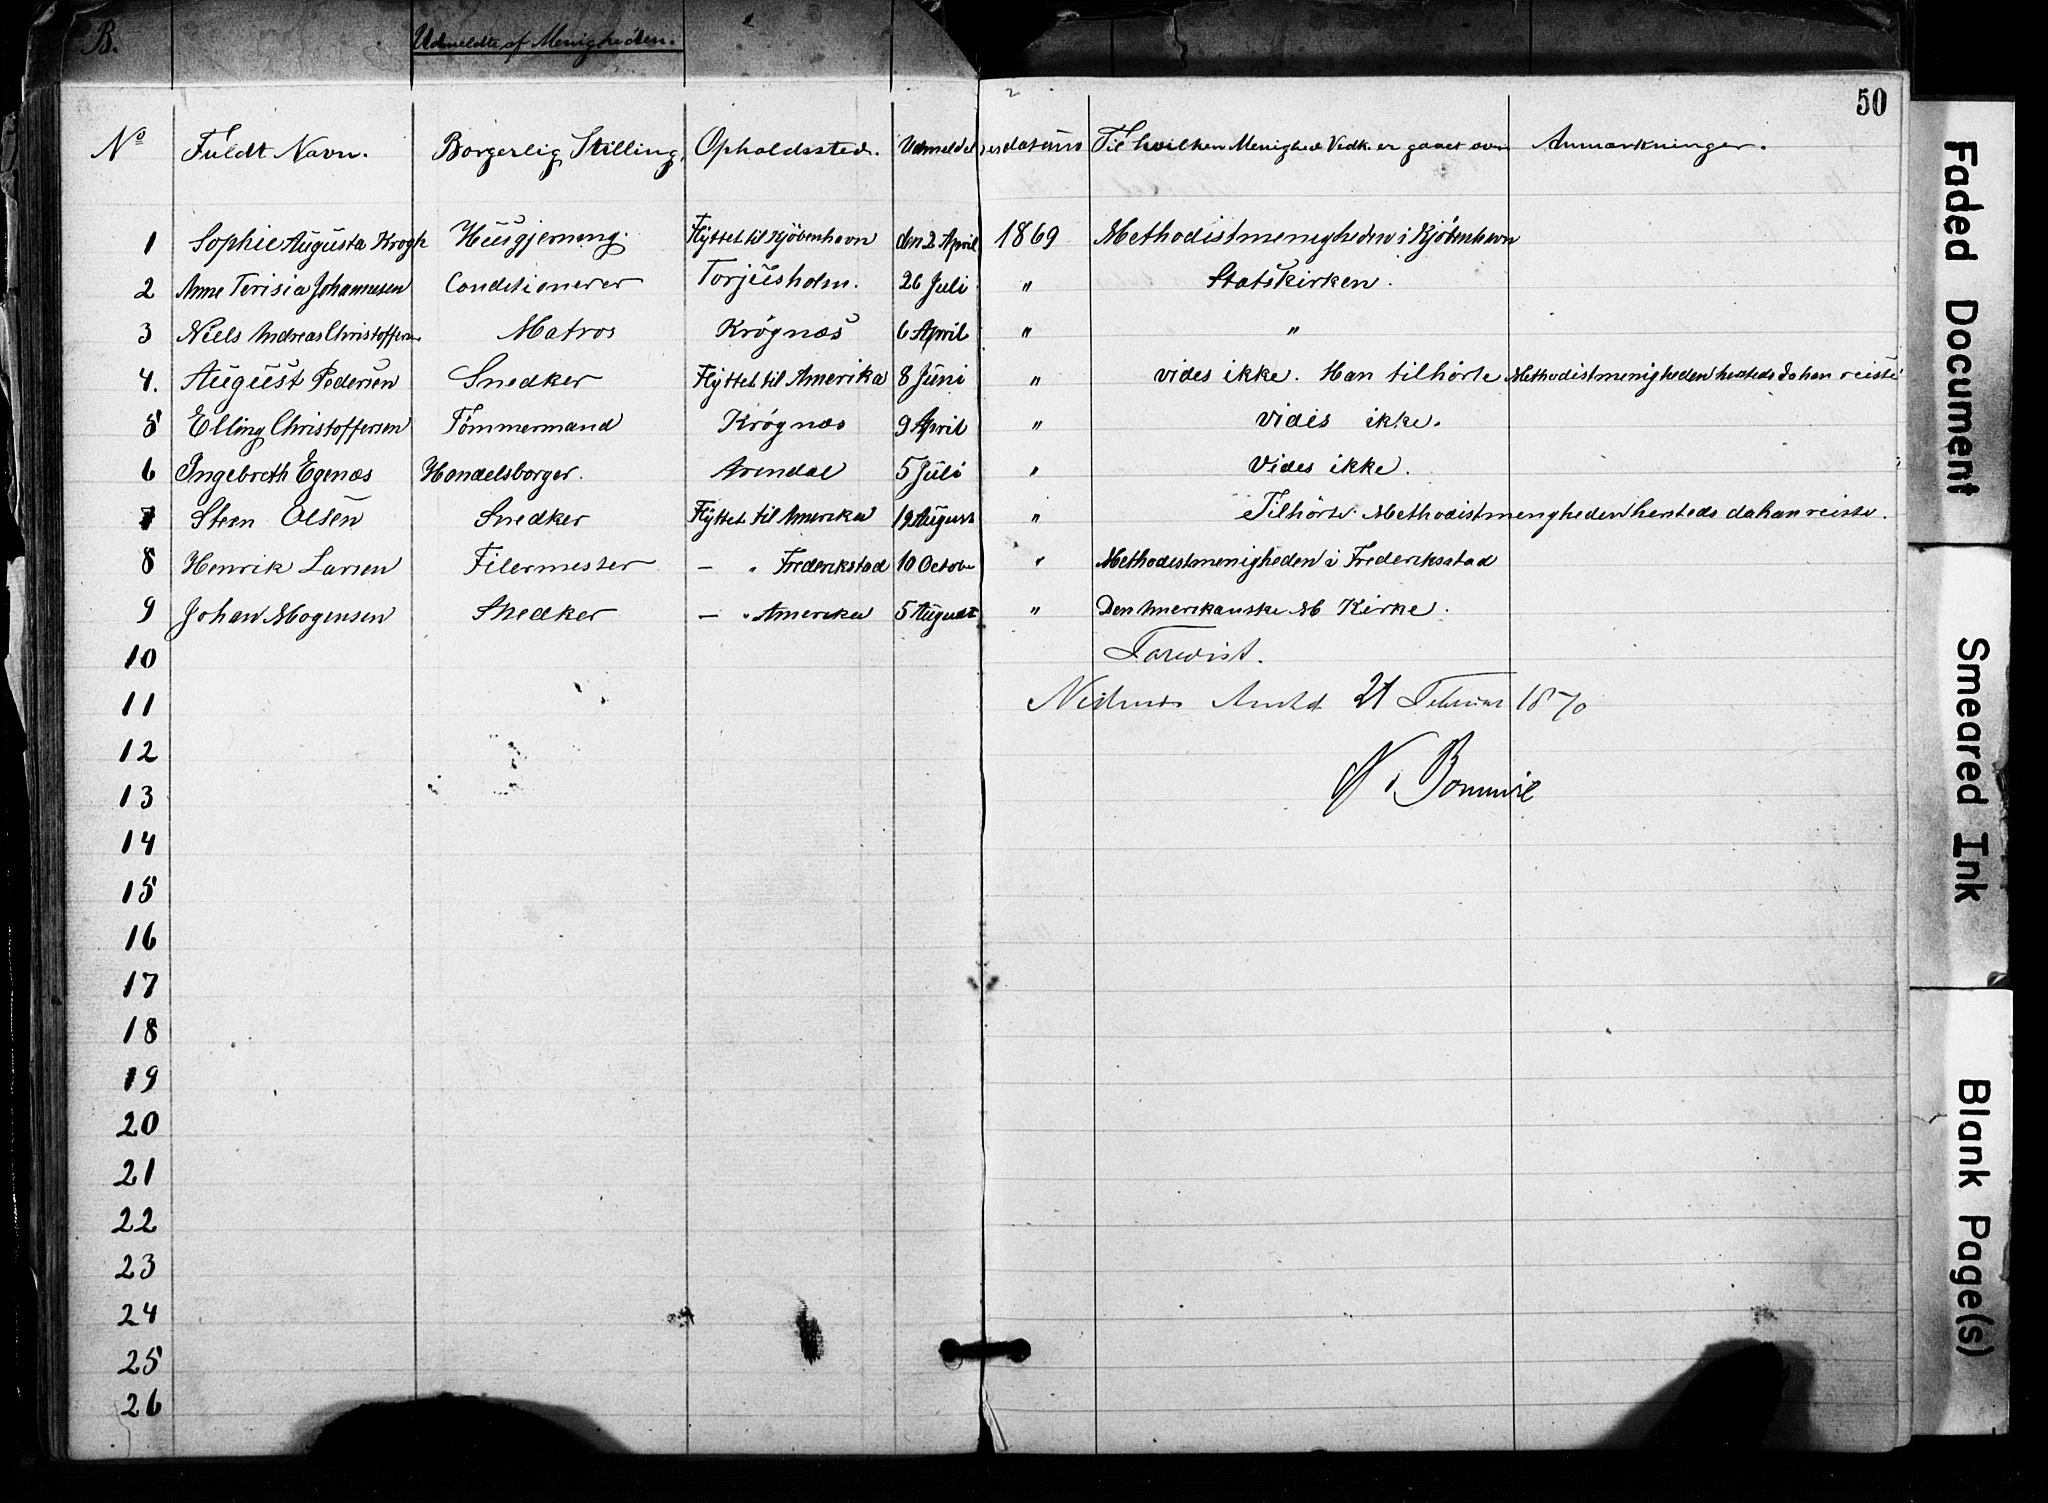 B. Udmeldte af Menigheden.
50
No Fuldt Navn. Borgerlig Stilling. Opholdssted. Udmeldelsesdatums Til hvilken Menighed Vedk. er gaaet over Anmærkninger.
1 Sophie Augusta Krogh Huusgjerneng. Flyttet til Kjöbenhavn den 2 April 1869 Methodistmenigheden i Kjöbenhavn
2 Anne Terisia Johannesen Conditionerer Torjusholm. 26 Juli " Statskirken.
3 Niels Andreas Christoffersen Matros Krögnæs 6 April " "
4. August Pedersen Snedker Flyttet til Amerika 8 Juni " vides ikke. Han tilhörte Methodistmenigheden hersteds da han reiste
5 Elling Christoffersen Tömmermand Krögnæs 9 April " vides ikke.
6 Ingebreth Egenæs Handelsborger. Arendal 5 Juli " Vides ikke.
7 Steen Olsen Snedker Flyttet til Amerika 19 August " Tilhörte Methodistmenigheden hersteds da han reiste.
8 Henrik Larsen Filermester — " Frederikstad 10 Octobe " Methodistmenigheden i Frederiksstad
9 Johan Mogensen Snedker — " Amerika 5 August " Den Amerikanske M Kirke.
10 Forevist.
11 Nedenes Amtsd 21 Februar 1870
12
13
14
15
16
17
18
19
20
21
22
23
24
25
26
Faded Document
Smeared Ink
Blank Page(s)